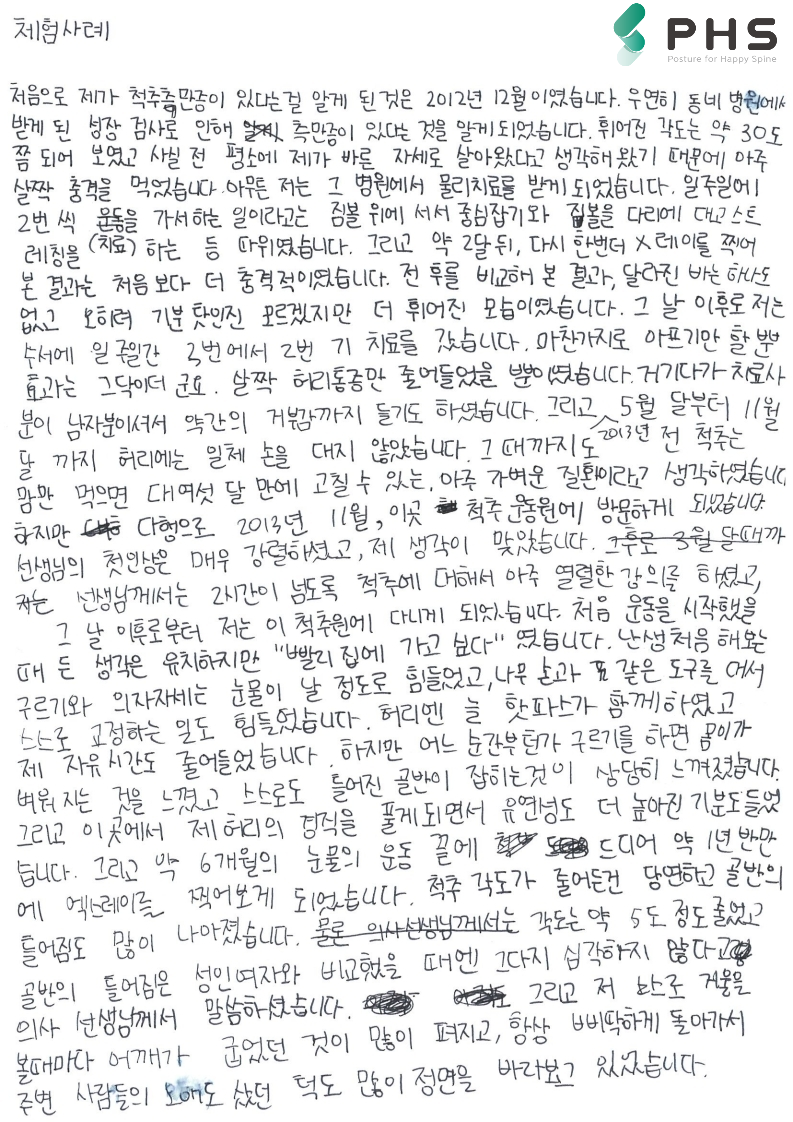 체험사례
PHS
Posture for Happy Spine
처음으로 제가 척추측만증이 있다는걸 알게 된 것은 2012년 12월이였습니다. 우연히 동네 병원에서
받게 된 성장 검사로 인해 측만증이 있다는 것을 알게 되었습니다. 휘어진 각도는 약 30도
쯤 되어 보였고 사실 전 평소에 제가 바른 자세로 살아왔다고 생각해 왔기 때문에 아주
살짝 충격을 먹었습니다. 아무튼 저는 그 병원에서 물리치료를 받게 되었습니다. 일주일에
2번 씩 운동을 가서 하는 일이라고는 짐볼 위에 서서 중심잡기와 짐볼을 다리에 대고 스트
레칭을 (치료) 하는 등 따위였습니다. 그리고 약 2달 뒤, 다시 한번더 X레이를 찍어
본 결과는 처음 보다 더 충격적이였습니다. 전 후를 비교해 본 결과, 달라진 바는 하나도
없고 오히려 기분 탓인진 모르겠지만 더 휘어진 모습이였습니다. 그 날 이후로 저는
수서에 일주일간 2번에서 2번 기 치료를 갔습니다. 마찬가지로 아프기만 할 뿐
효과는 그닥이더 군요. 살짝 허리통증만 줄어들었을 뿐이였습니다. 거기다가 치료사
분이 남자분이셔서 약간의 거부감까지 들기도 하였습니다. 그리고 2013년 5월 달부터 11월
달 까지 허리에는 일체 손을 대지 않았습니다. 그 때까지도 전 척추는
맘만 먹으면 대여섯 달 만에 고칠 수 있는, 아주 가벼운 질환이라고 생각하였습니다
하지만 다행으로 2013년 11월, 이곳 척추 운동원에 방문하게 되었습니다.
선생님의 첫인상은 매우 강렬하셨고, 제 생각이 맞았습니다. 그후로 3월 달때까
선생님께서는 2시간이 넘도록 척추에 대해서 아주 열렬한 강의를 하셨고,
그 날 이후로부터 저는 이 척추원에 다니게 되었습니다. 처음 운동을 시작했을
때 든 생각은 유치하지만 "빨리 집에 가고 싶다" 였습니다. 난생처음 해보는
구르기와 의자자세는 눈물이 날 정도로 힘들었고, 나무 손과 같은 도구를 써서
스스로 교정하는 일도 힘들었습니다. 허리엔 늘 핫파스가 함께하였고
제 자유시간도 줄어들었습니다. 하지만 어느 순간부턴가 구르기를 하면 몸이가
벼워 지는 것을 느꼈고 스스로도 틀어진 골반이 잡히는것이 상당히 느껴졌습니다.
그리고 이곳에서 제 허리의 경직을 풀게되면서 유연성도 더 높아진 기분도들었
습니다. 그리고 약 6개월의 눈물의 운동 끝에 드디어 약 1년 반만
에 엑스레이를 찍어보게 되었습니다. 척추 각도가 줄어든건 당연하고 골반의
틀어짐도 많이 나아졌습니다. 물론 의사선생님께서는 각도는 약 5도 정도 줄었고
골반의 틀어짐은 성인여자와 비교했을 때엔 그다지 심각하지 않다고
의사 선생님께서 말씀하셨습니다. 그리고 저 스스로 거울을
볼때마다 어깨가 굽었던 것이 많이 펴지고, 항상 삐딱하게 돌아가서
주변 사람들의 오해도 샀던 턱도 많이 정면을 바라보고 있었습니다.